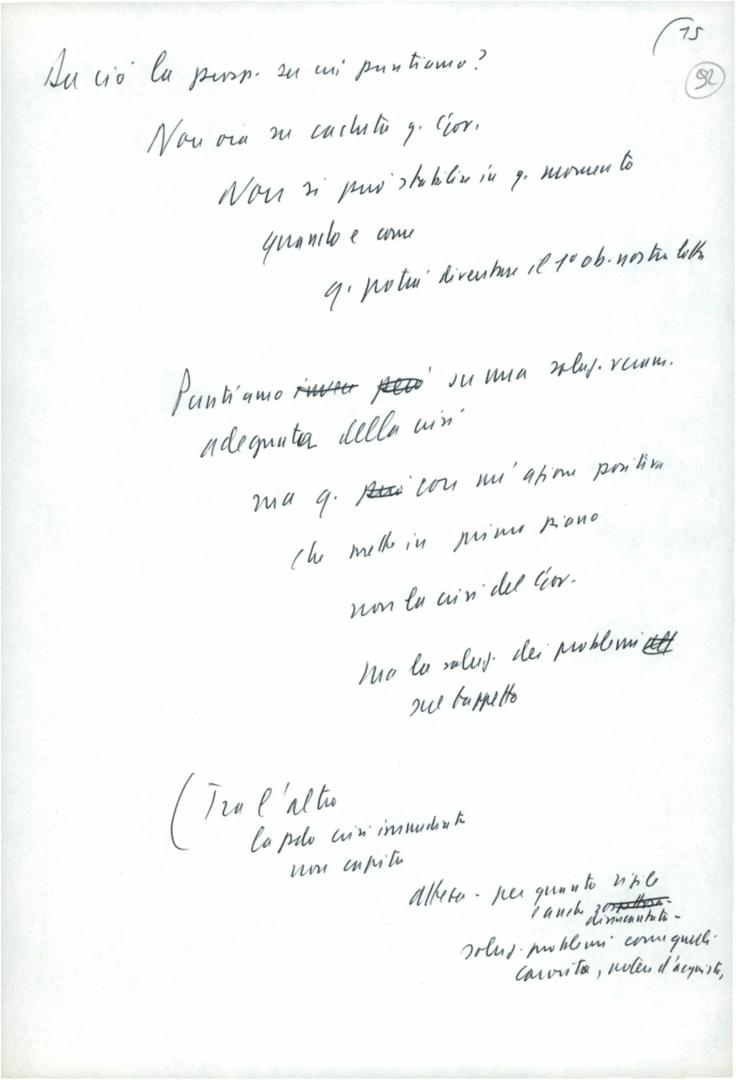 (15
92
Su ciò la prosp. su cui puntiamo?
Non ora su caduta q. Gov.
Non si può stabilire in q. momento
quando e come
q. potrà diventare il 1° ob. nostra lotta
Puntiamo invece però su una soluz. veram.
adeguata della crisi
ma q. però con un'azione positiva
che mette in primo piano
non la crisi del Gov.
ma la soluz. dei problemi
sul tappeto
(Tra l'altro
la crisi immediata
non capita
attesa - per quanto
e anche
soluz. problemi come quelli
carovita, potere d'acquisto,